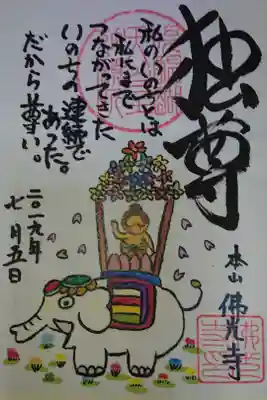 独尊
私のいのちとは
私にまで
つながってきた
いのちの連続で
あった。
だから尊い。
二〇一九年
七月五日
本山 佛光寺